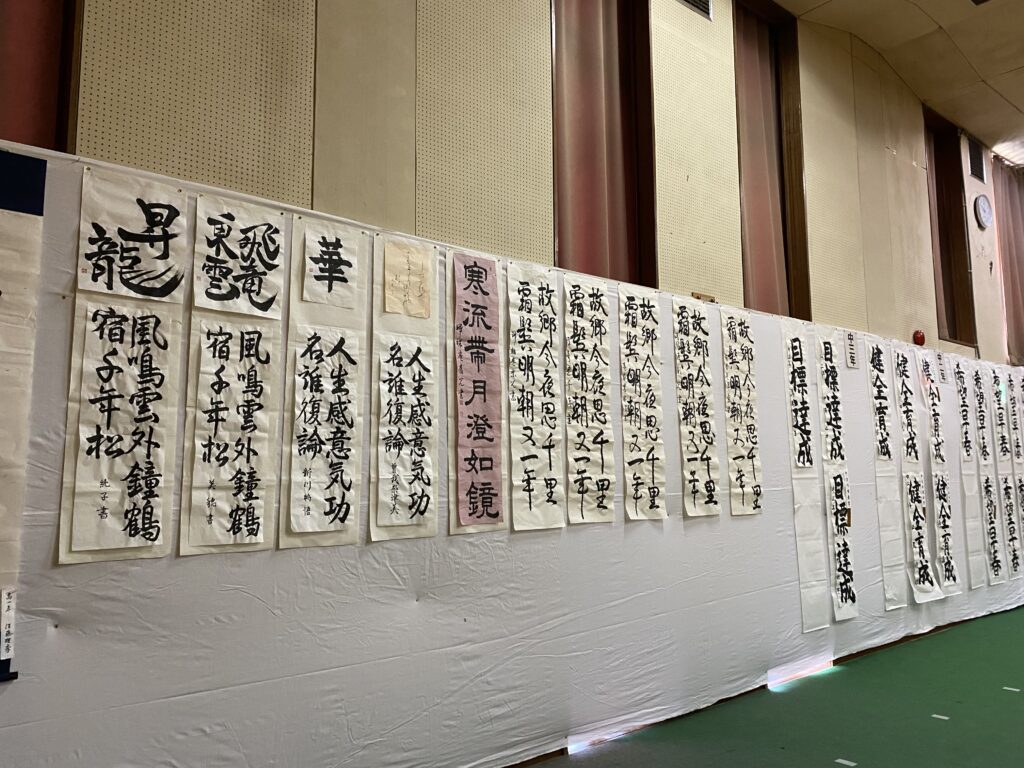 高一年
昇
龍
風鳴雲外鐘鶴
宿千年松
飛竜
東雲
風鳴雲外鐘鶴
宿千年松
華
人生感意気功
名誰復論
人生感意気功
名誰復論
寒流帶月澄如鏡
故郷今夜思千里
霜鬢明朝又一年
故郷今夜思千里
霜鬢明朝又一年
故郷今夜思千里
霜鬢明朝又一年
故郷今夜思千里
霜鬢明朝又一年
故郷今夜思千里
霜鬢明朝又一年
目標達成
目標達成
目標達成
中三年
健全育成
健全育成
健全育成
健全育成
健全育成
中二年
希望早春
希望早春
希望早春
希望早春
希望早春